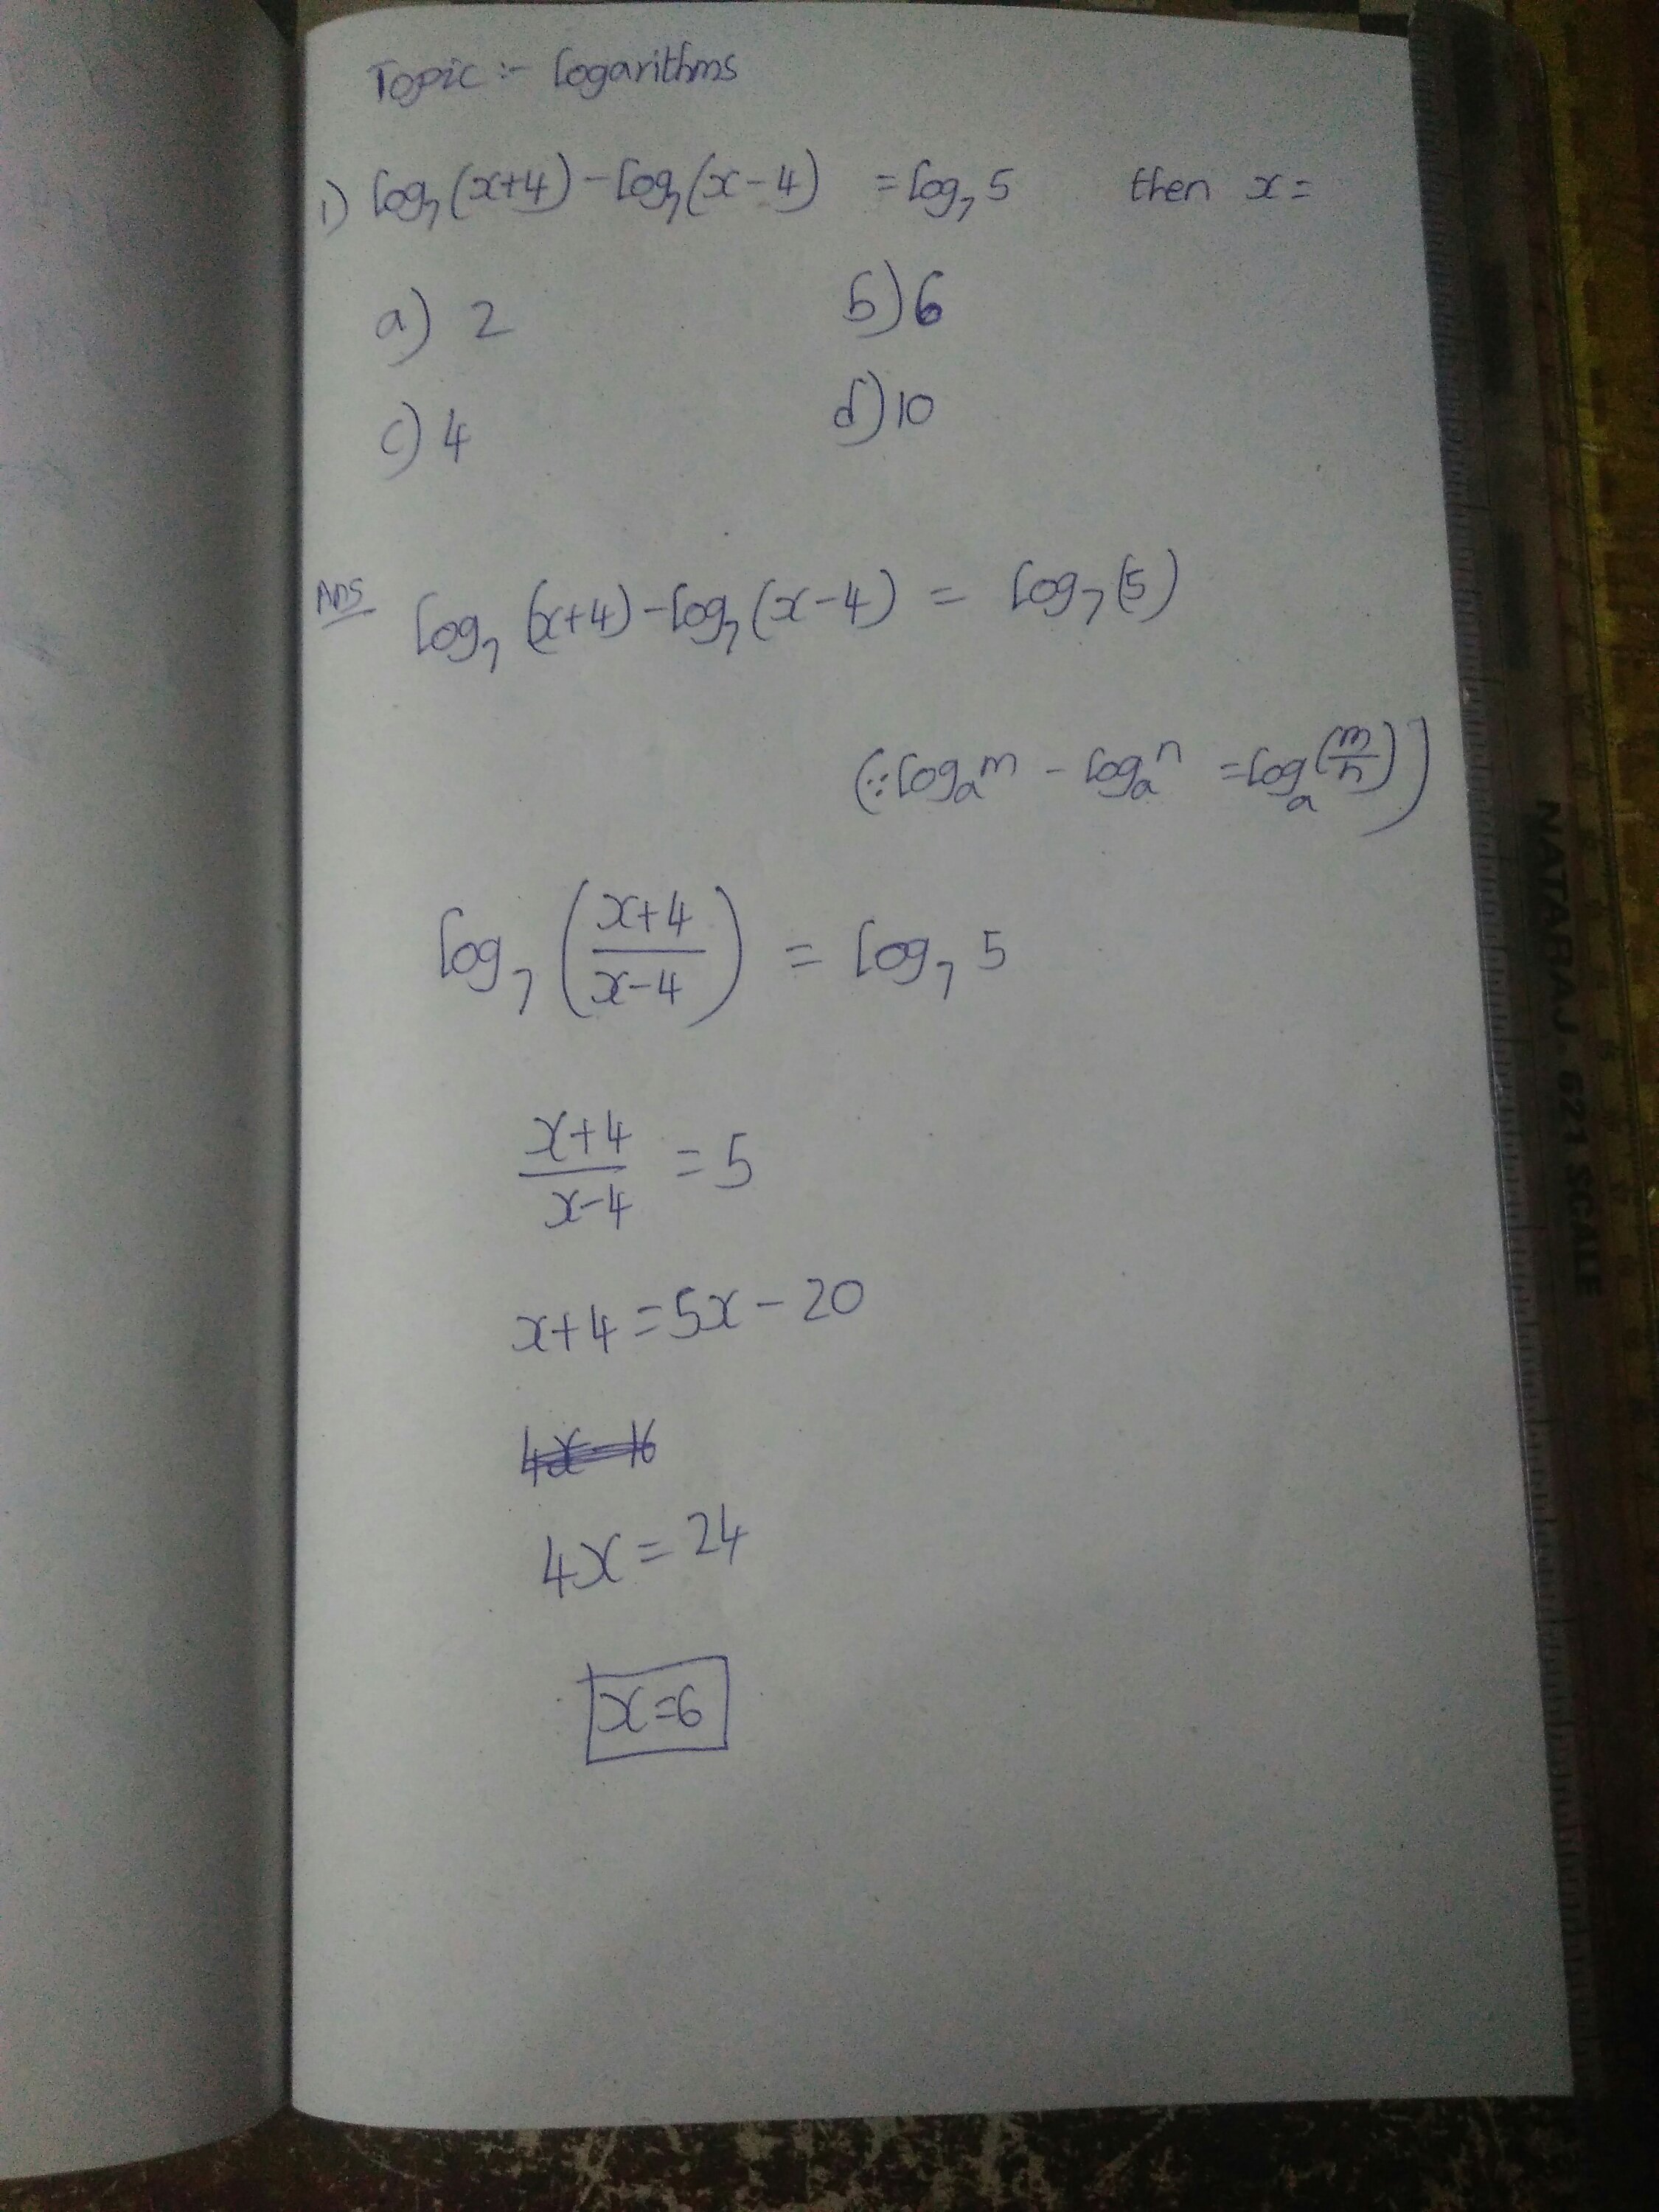 Topic :- logarithms
1) log₇(x+4) - log₇(x-4) = log₇5 then x =
a) 2 b) 6
c) 4 d) 10
Ans log₇(x+4) - log₇(x-4) = log₇(5)
(∵ logₐm - logₐn = logₐ(m/n))
log₇((x+4)/(x-4)) = log₇5
(x+4)/(x-4) = 5
x+4 = 5x - 20
4x = 24
x = 6
NATARAJ - 621 SCALE